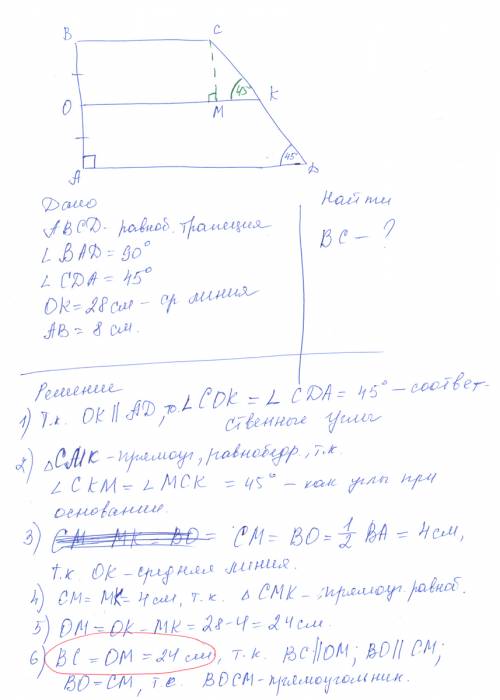 B C
45°
O M K
45°
A D
Дано
ABCD - равноб. трапеция
∠ BAD = 90°
∠ CDA = 45°
OK = 28 см - ср линия
AB = 8 см.
Найти
BC - ?
Решение
1) Т.к. OK || AD, то ∠ COK = ∠ CDA = 45° - соответ-
ственные углы
2) △ CMK - прямоуг, равнобедр., т.к.
∠ CKM = ∠ MCK = 45° - как углы при
основании.
3) CM = MK = BO = CM = BO = 1/2 BA = 4 см,
т.к. OK - средняя линия.
4) CM = MK = 4 см, т.к. △ CMK - прямоуг. равноб.
5) OM = OK - MK = 28 - 4 = 24 см.
6) BC = OM = 24 см, т.к. BC || OM; BO || CM;
BO = CM, т.е. BOCM - прямоугольник.